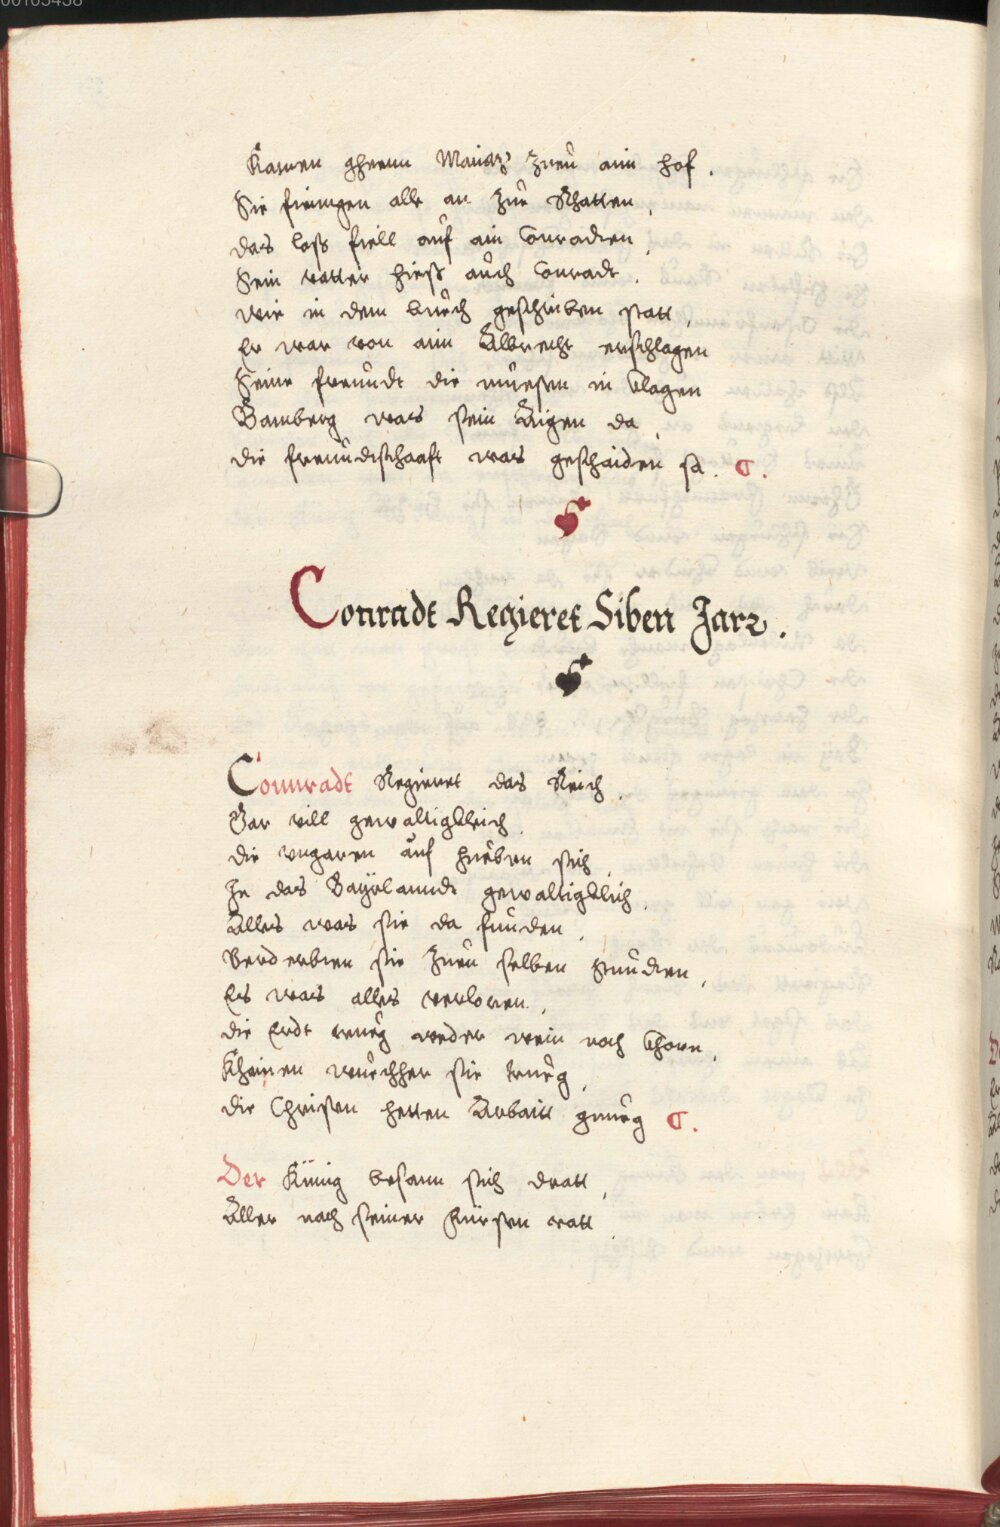 00105458
Kamen gheenn Maintz zueu aim hof.
Sie fiemgen alle an zue Rhatten,
das loß fiell auf ain Conradten,
Sein vatter hieß auch Conradt.
wie in dem buech geschriben statt,
Er war von aim Albrecht erschlagen
Seine freundt die muessen in klagen
Bamberg was sein Aigen da,
die freundtschaaft was geschaiden sa. C.
Conradt Regieret Siben Jarz.
Connradt Regieret das Reich,
Gar vill gewaltigkleich,
die vngaren auf hueben sich,
In das Bayrlanndt gewaltigklich,
Alles was sie da funden,
Verderbten sie zuen selben stundten,
Es was alles verloren,
die Erdt trueg weder wein noch khorn,
Khainen wuechher sie trueg,
die Christen hetten Arbaitt gnueg C.
Der Künig besann sich dratt,
Aller nach seiner Fürsten ratt